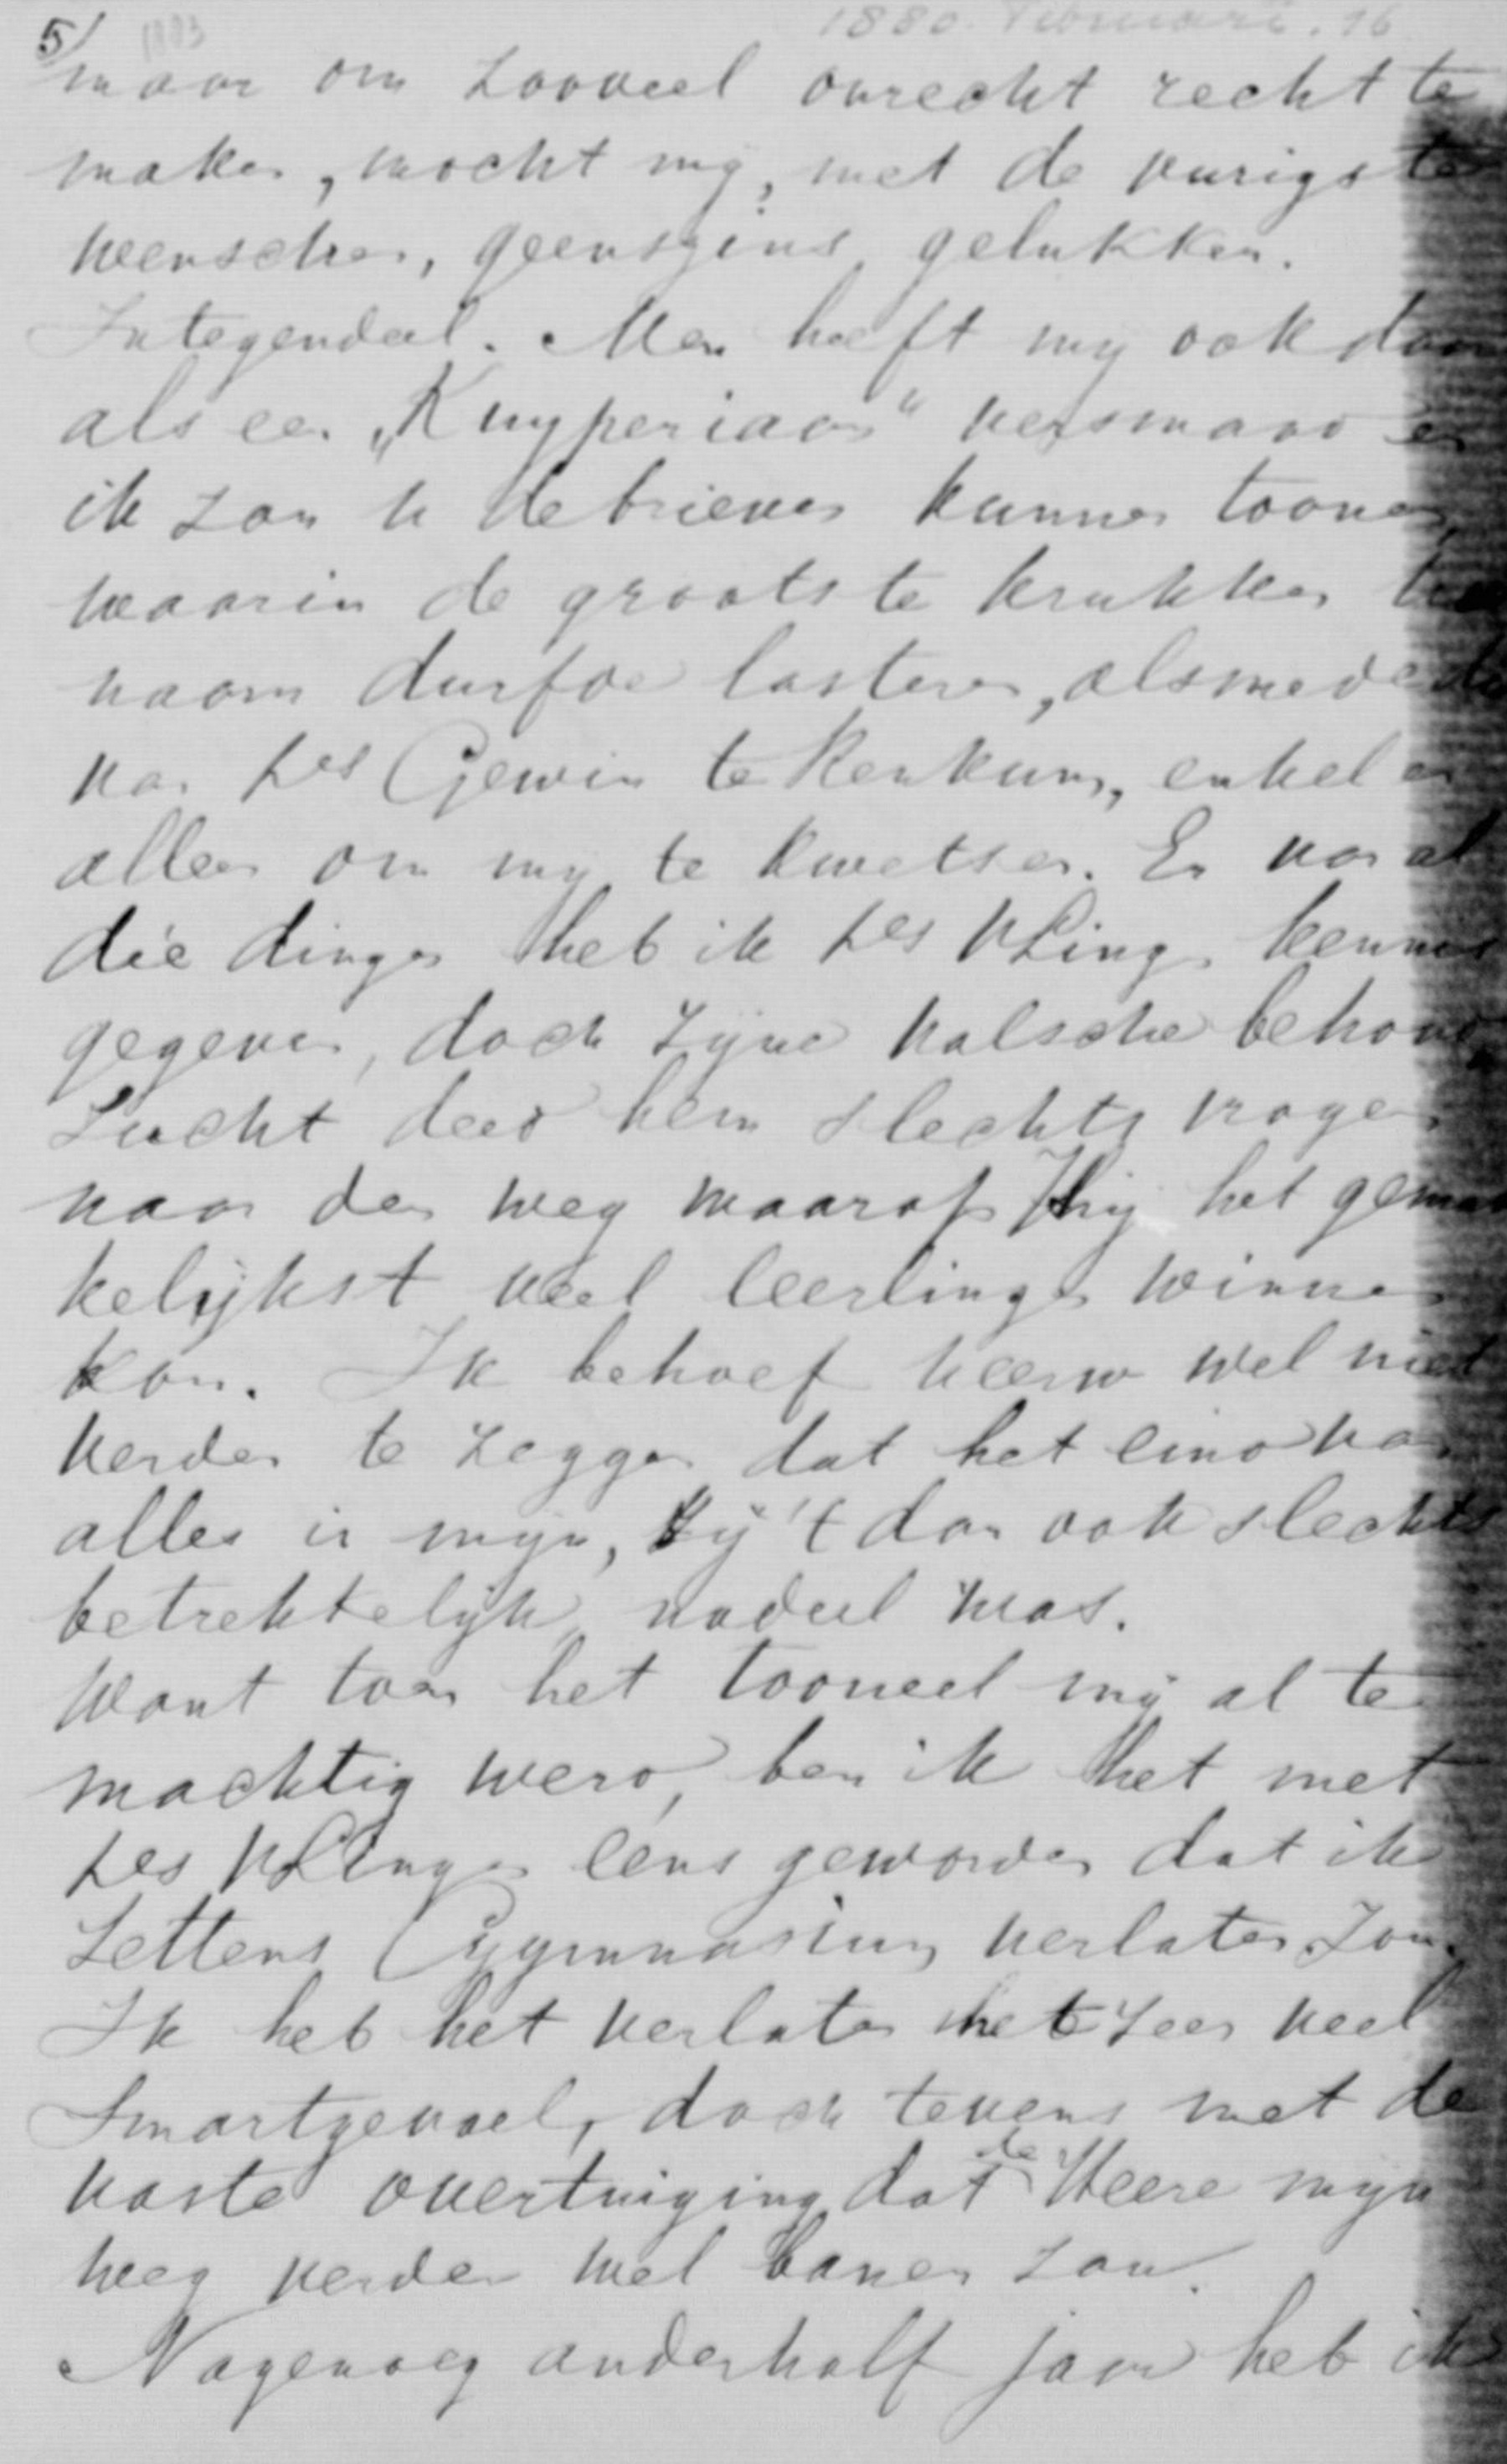 5/ 1880. Februari. 16
maar om zooveel onrecht recht te
maken, mocht mij, met de vurigste
wenschen, geenszins gelukken.
Integendeel. Men heeft mij ook daar
als een „Kuyperiaan" versmaad en
ik zou u de brieven kunnen toonen,
waarin de grootste krukken
naam durfde lasteren, alsmede
van Ds Gewin te Renkum, enkel en
alleen om mij te kwetsen. En van al
die dingen heb ik Ds kennis
gegeven, doch zijne valsche behoud
zucht deed hem slechts vragen
naar den weg waarop hij het gemak
kelijkst veel leerlingen winnen
kon. Ik behoef UEerw wel niet
verder te zeggen dat het eind van
alles in mijn, zij 't dan ook slechts
betrekkelijk nadeel was.
Want toen het tooneel mij al te
machtig werd, ben ik het met
Ds eens geworden dat ik
Zettens Gymnasium verlaten zou.
Ik heb het verlaten met zeer veel
smartgevoel, doch tevens met de
vaste overtuiging dat de Heere mijn
weg verder wel banen zou.
Nagenoeg anderhalf jaar heb ik